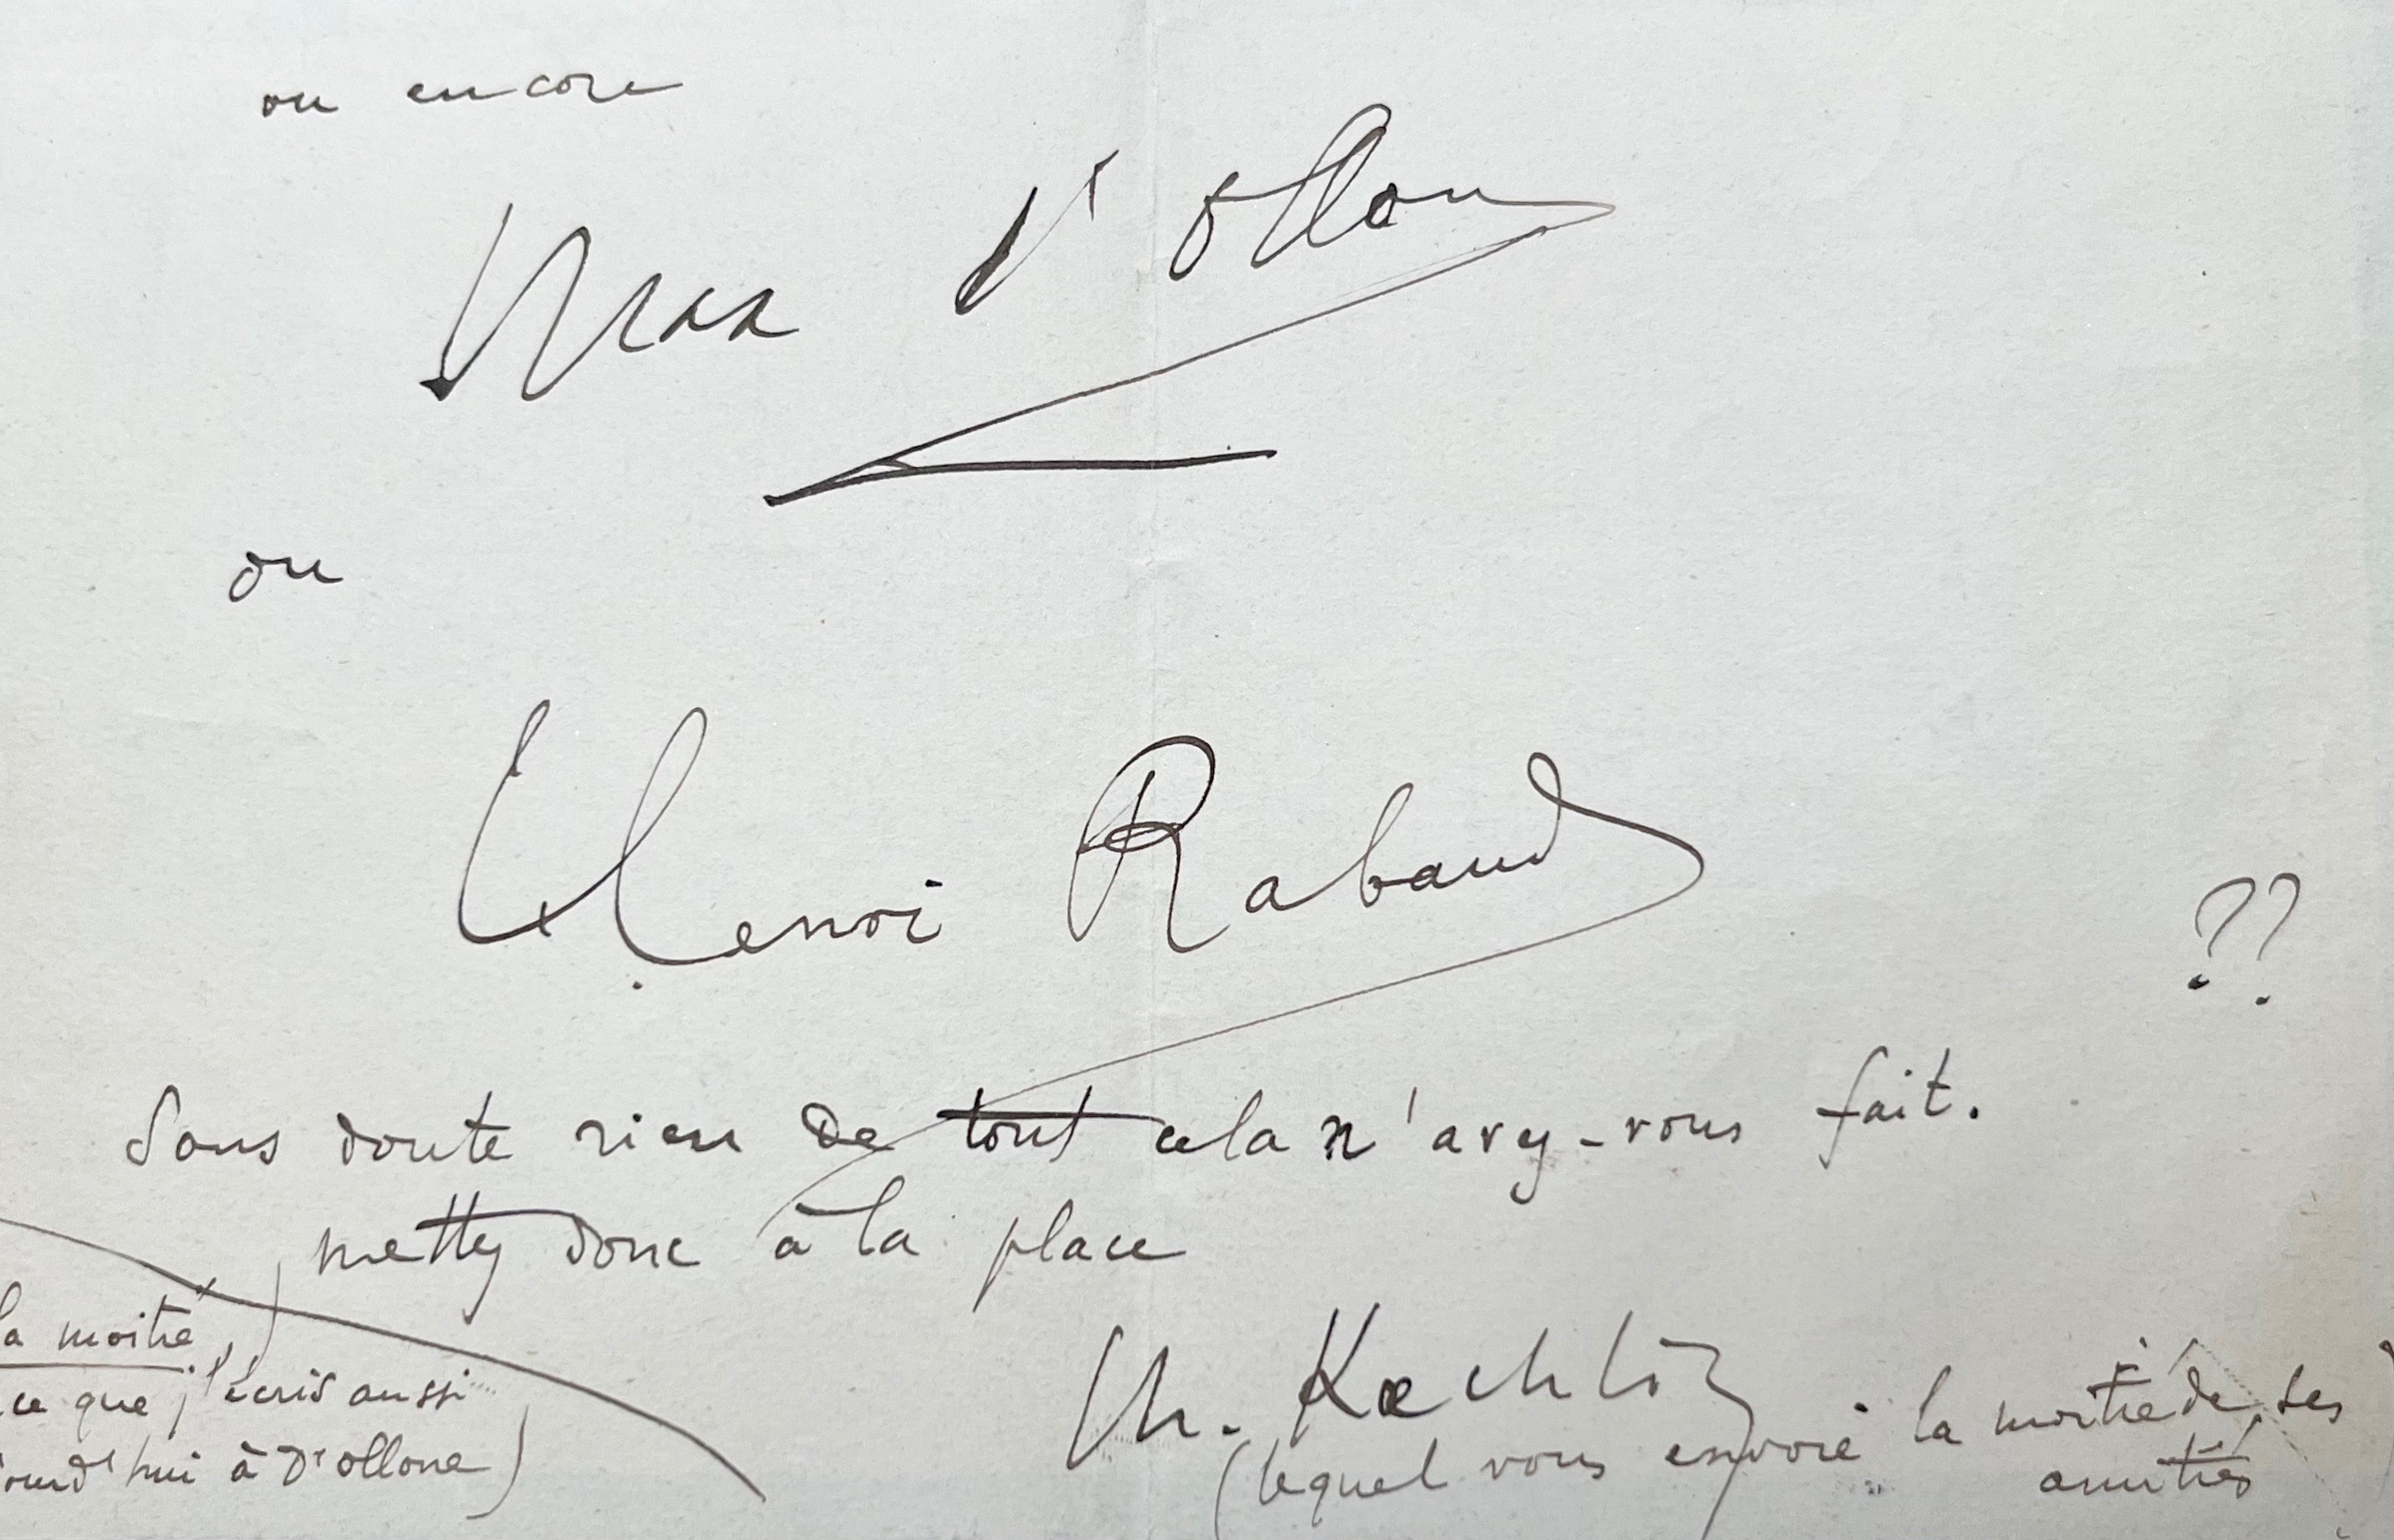 ou encore
Max d'Ollon
ou
Henri Rabaud
??
Sans doute rien de tout cela n'avez-vous fait.
mettez donc à la place
la moitié,)
ce que j'écris aussi
ourd'hui à d'ollone)
Ch. Kœchlin
(lequel vous envoie la moitié de ses
amitiés